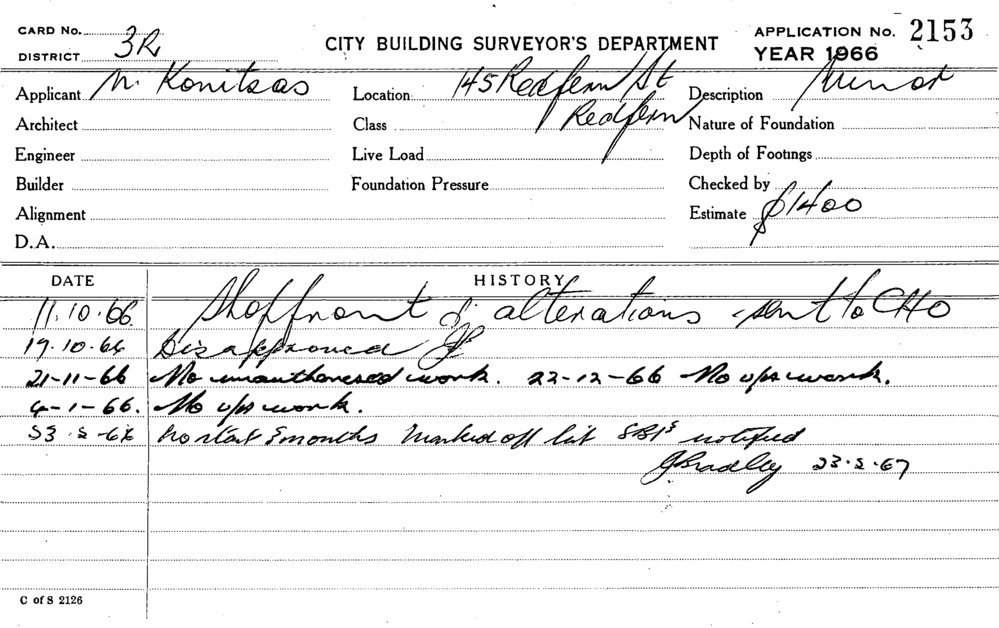 CARD No.
DISTRICT 3R
CITY BUILDING SURVEYOR'S DEPARTMENT
APPLICATION No. 2153
YEAR 1966
Applicant N. Konitsas
Location 145 Redfern St
Redfern
Description Minor
Architect
Class
Nature of Foundation
Engineer
Live Load
Depth of Footings
Builder
Foundation Pressure
Checked by
Alignment
Estimate $1400
D.A.
DATE HISTORY
11.10.66. Shopfront & alterations - sent to CHO
19.10.66 Disapproved
21-11-66 No unauthorised work. 22-12-66 No ups work.
4-1-66. No ups work.
23.2.67 No start 3 months Marked off list notified
JBradley 23.2.67
C of S 2126